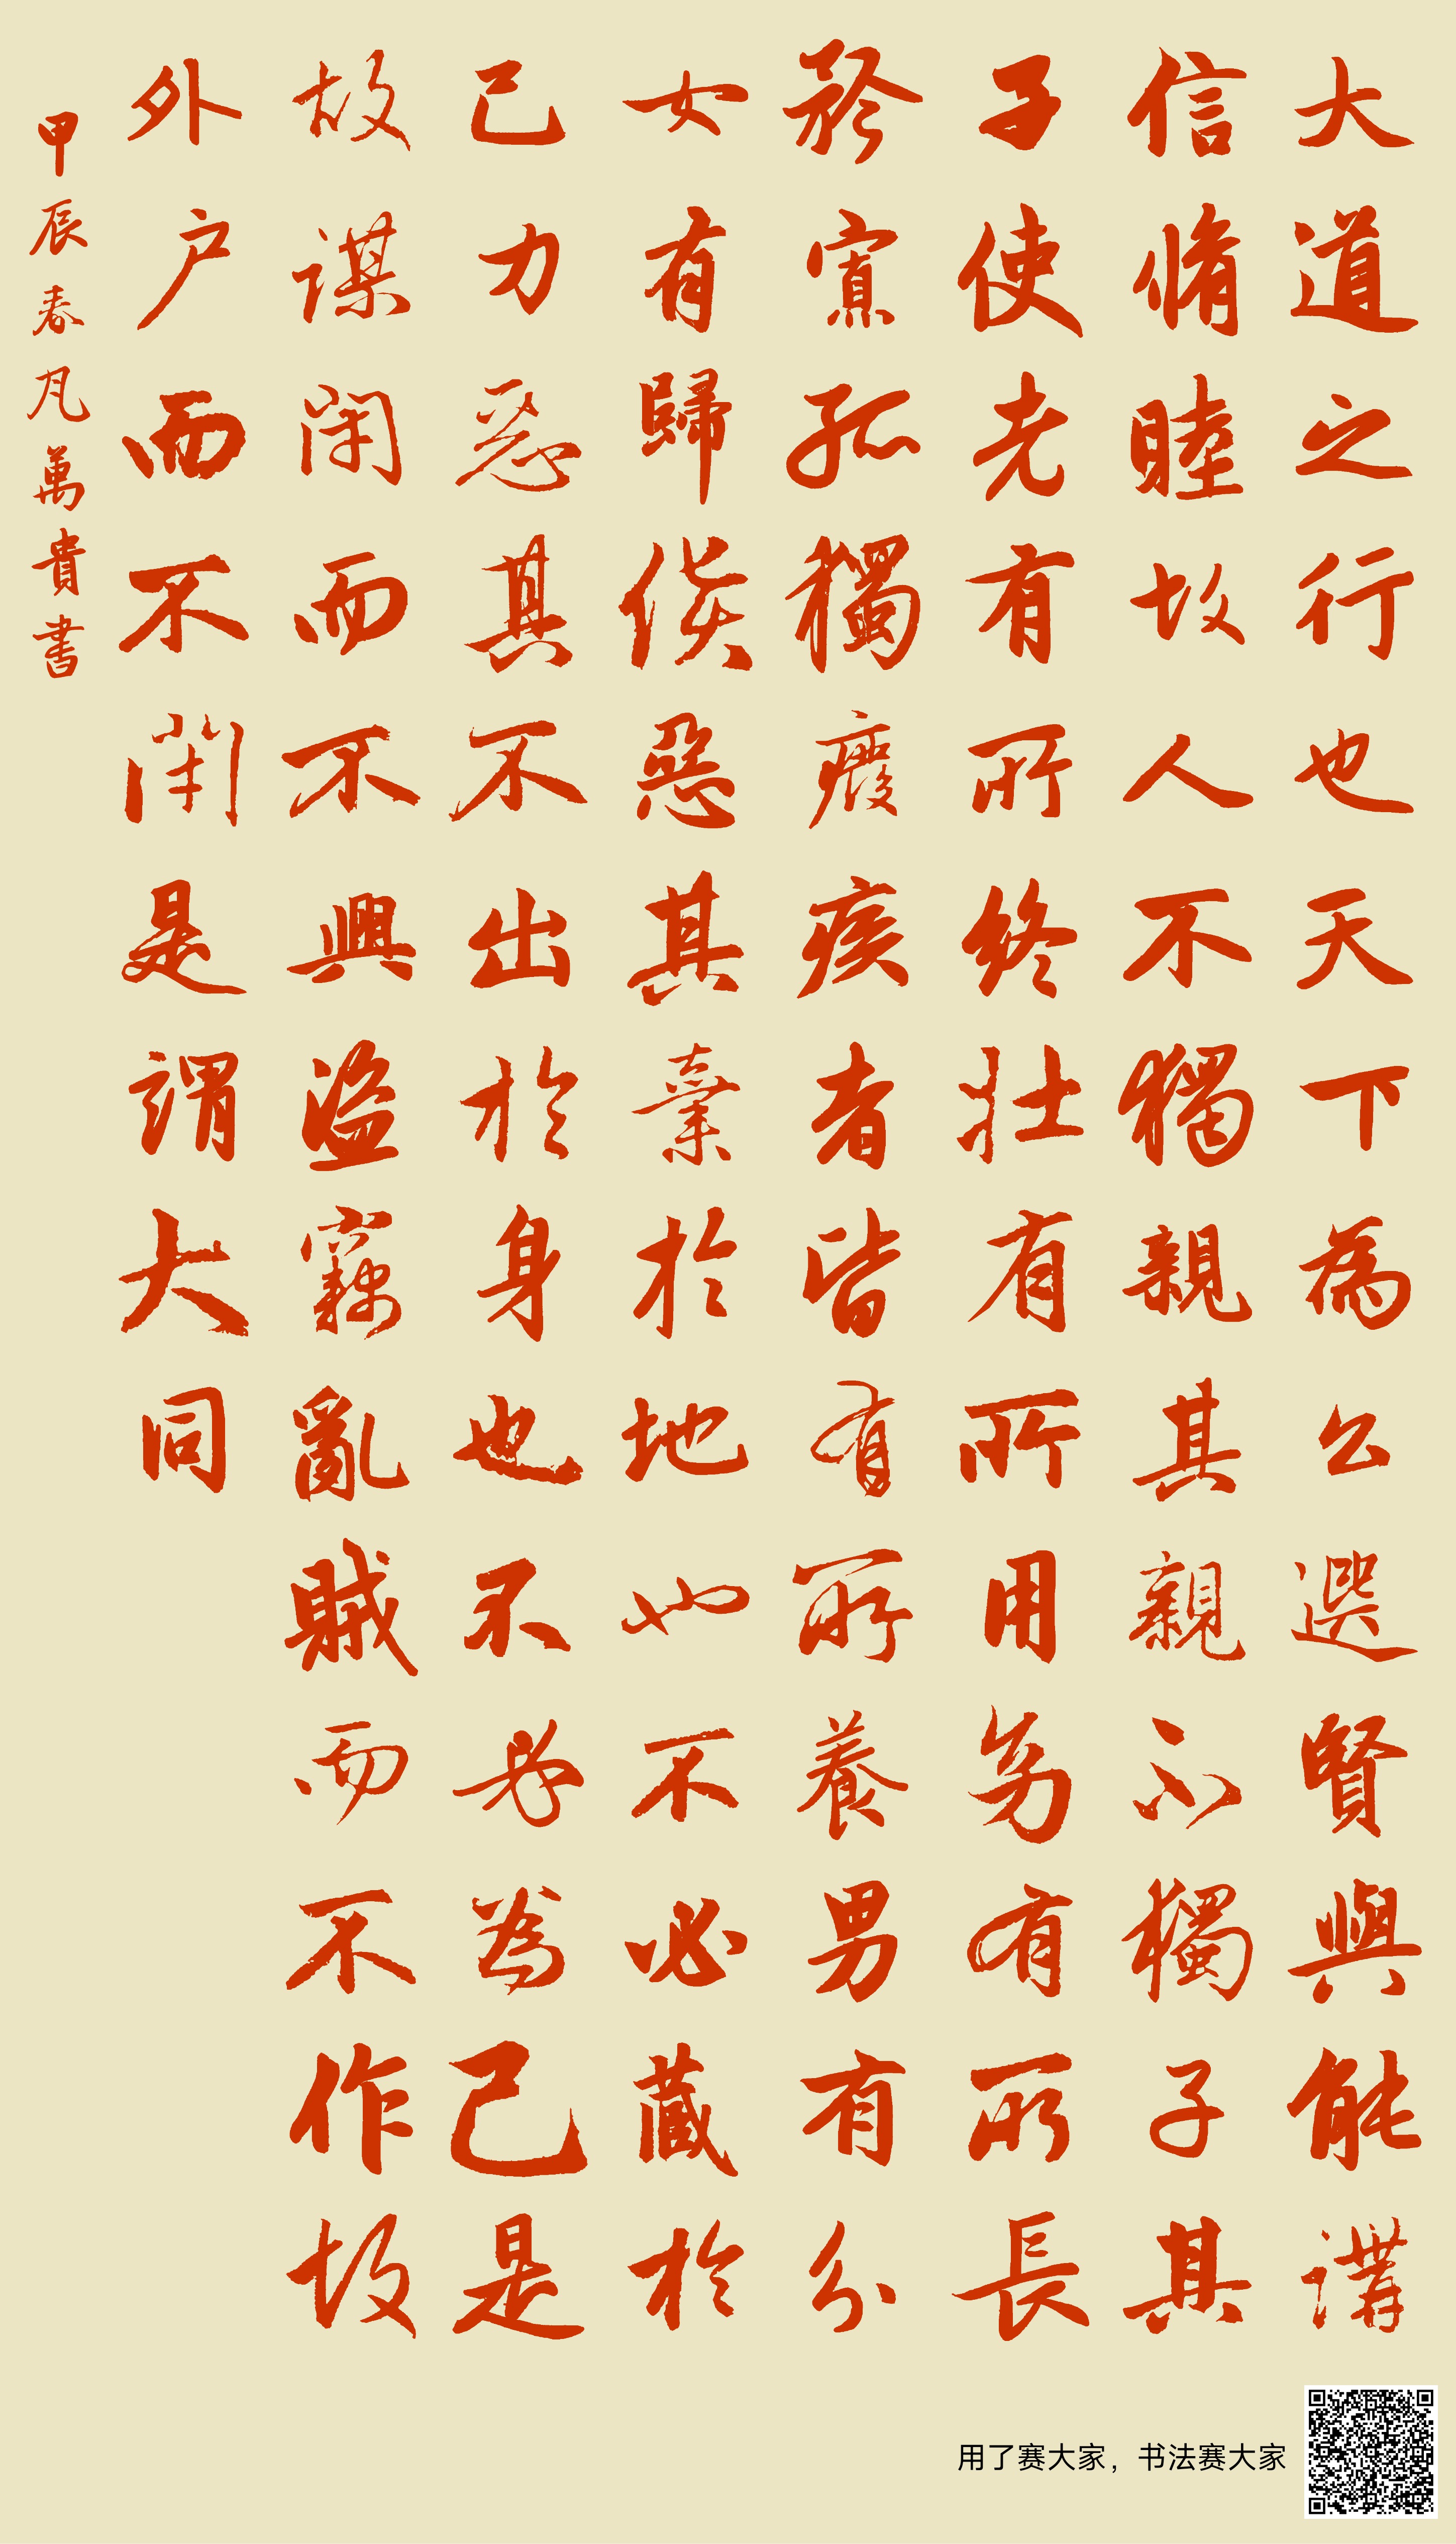 大道之行也天下為公選賢與能講
信脩睦故人不獨親其親不獨子其
子使老有所終壯有所用幼有所長
矜寡孤獨癈疾者皆有所養男有分
女有歸貨惡其棄於地也不必藏於
己力惡其不出於身也不必為己是
故謀閉而不興盜竊亂賊而不作故
外户而不閉是謂大同
甲辰春凡萬貴書
用了赛大家，书法赛大家